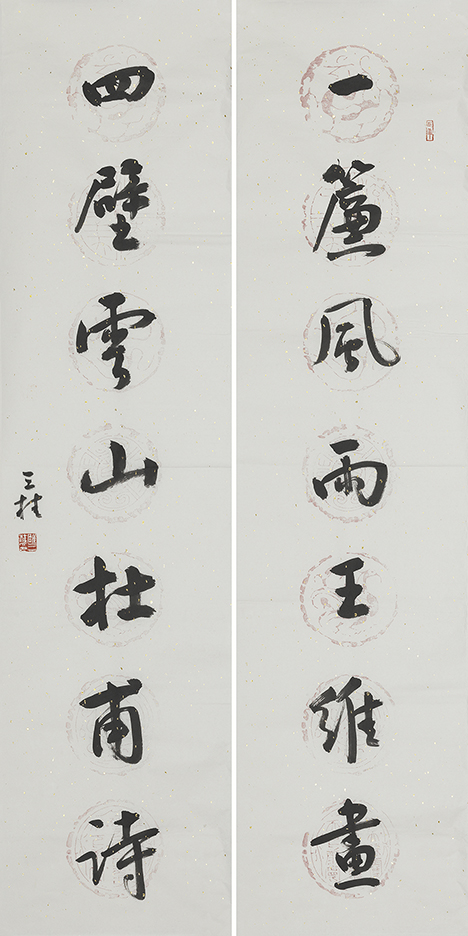 一簾風雨王維畫
四壁雲山杜甫詩